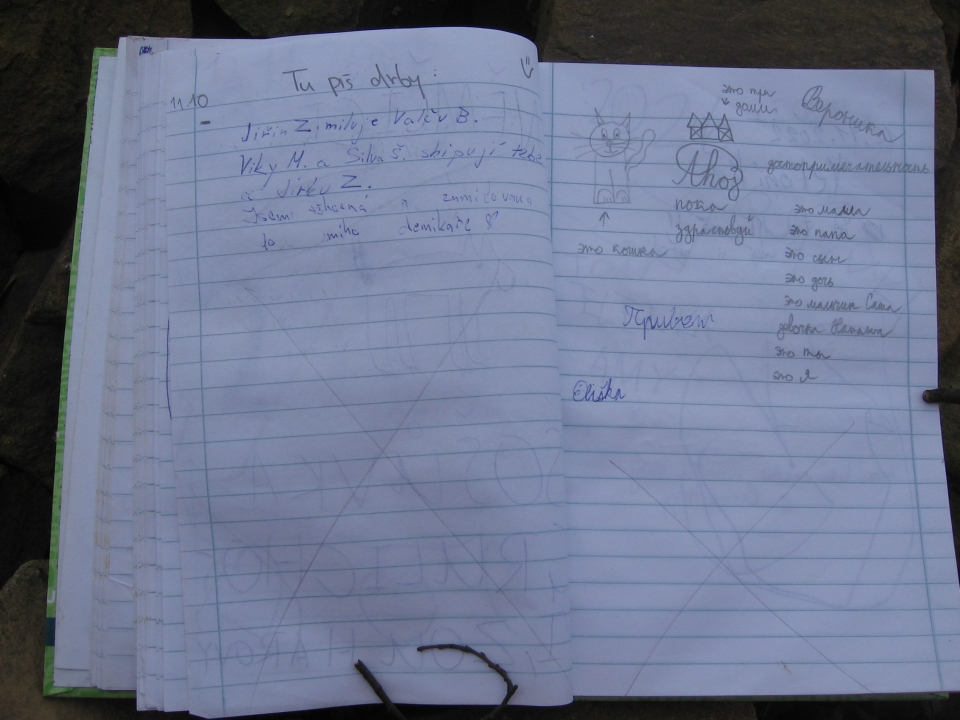 Tu piš drby:
11.10
Jiřin Z. miluje Valču B.
Viky M. a Silva Š. shipují tebe
a Jirku Z.
Jsem a zamilovaná
do mího demikaře
это три
дома
Вероника
Ahoj
достопримечательность
пока
это мама
здраствуй
это папа
это кошка
это сын
это дочь
это мальчик Саша
Привет
девочка Наташа
это ты
это я
Eliška